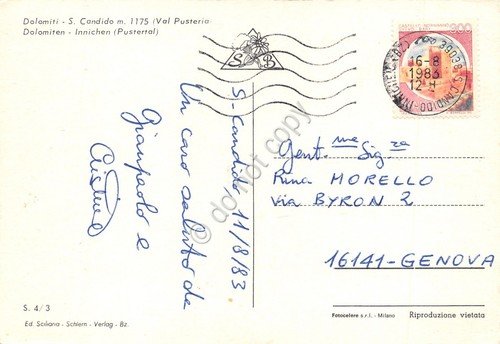 Dolomiti - S. Candido m. 1175 (Val Pusteria)
Dolomiten - Innichen (Pustertal)
S B
39038 S. CANDIDO-INNICHEN (BZ)
16-8
1983
12 H
200
S. Candido 11/8/83
Un caro saluto da
Gianpaolo e
Cristina
Gent.me Sig.za
Rina MORELLO
Via BYRON 2
16141-GENOVA
S. 4/3
Ed. Sciliana - Schlern - Verlag - Bz.
Fotocelere s.r.l. - Milano
Riproduzione vietata
do not copy